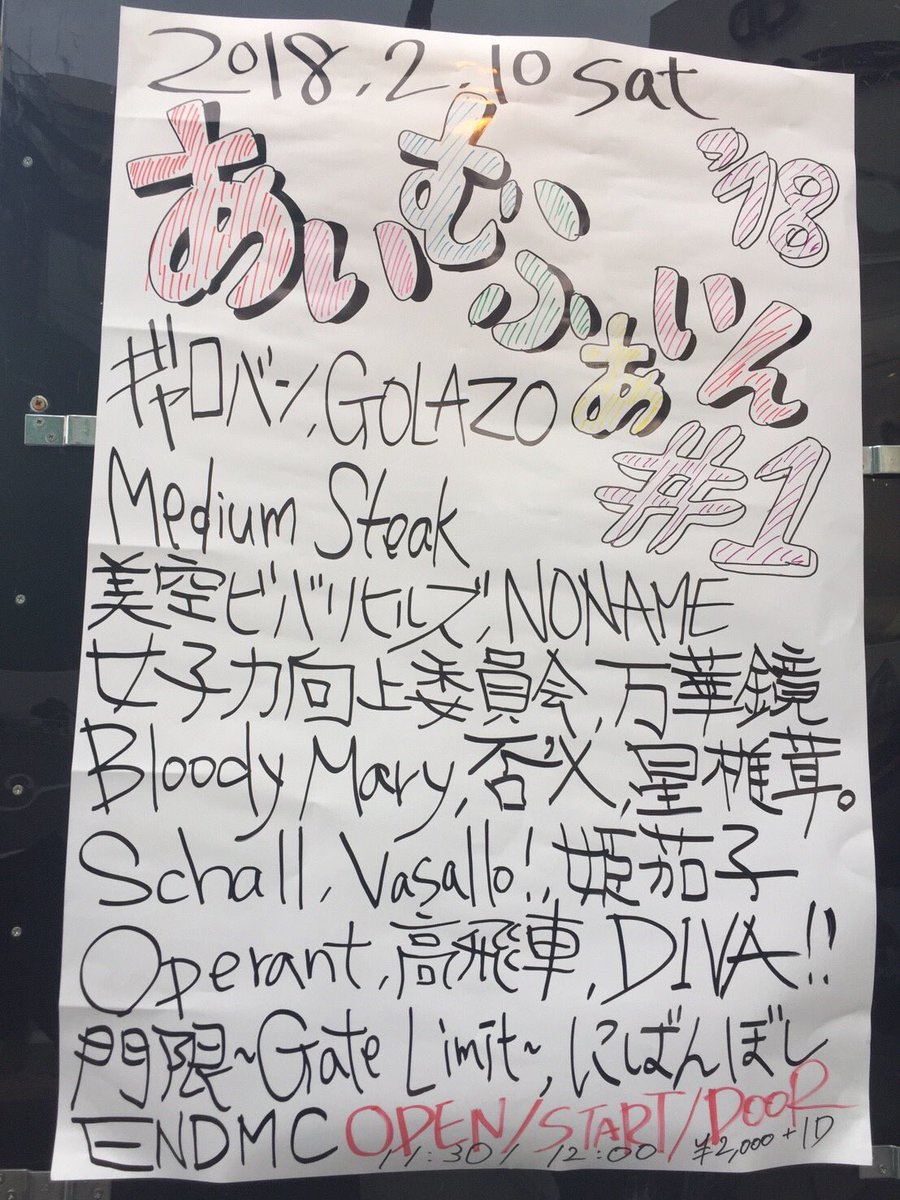 2018.2.10 sat
あいむふぁいん '18
#1
ギャロバン, GOLAZO
Medium Steak
美空ビバリヒルズ, NONAME
女子力向上委員会, 万華鏡
Bloody Mary, 否メ, 星椎茸。
Schall, Vasallo!, 姫茄子
Operant, 高飛車, DIVA!!
門限~Gate Limit~, にばんぼし
ENDMC OPEN/START/DOOR
11:30/ 12:00 ¥2,000+1D